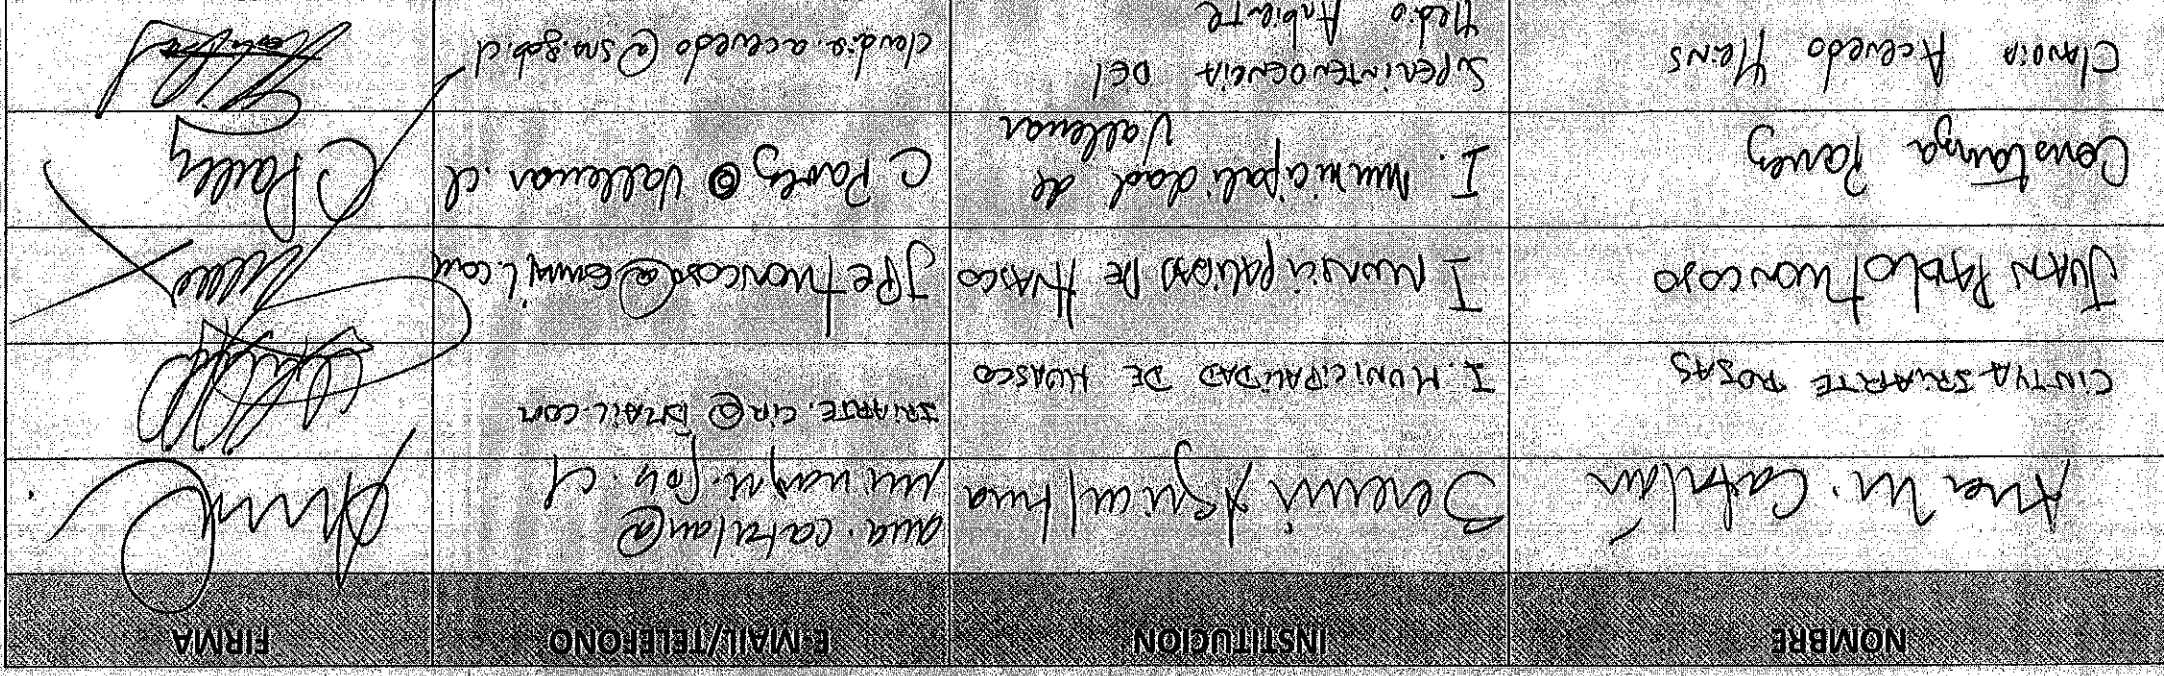 NOMBRE INSTITUCION E-MAIL/TELEFONO FIRMA
Ana M. Catalán Seremi Agricultura ana.catalan@
minagri.gob.cl
CINTYA IRIARTE ROSAS I. MUNICIPALIDAD DE HUASCO IRIARTE.CIR@GMAIL.COM
JUAN PABLO MONCOSO I MUNICIPALIDAD DE HUASCO
Constanza Pavez I. Municipalidad de
Vallenar C.Pavez@Vallenar.cl C Pavez
Claudia Acevedo Meins SUPERINTENDENCIA DEL
Medio Ambiente claudia.acevedo@sma.gob.cl